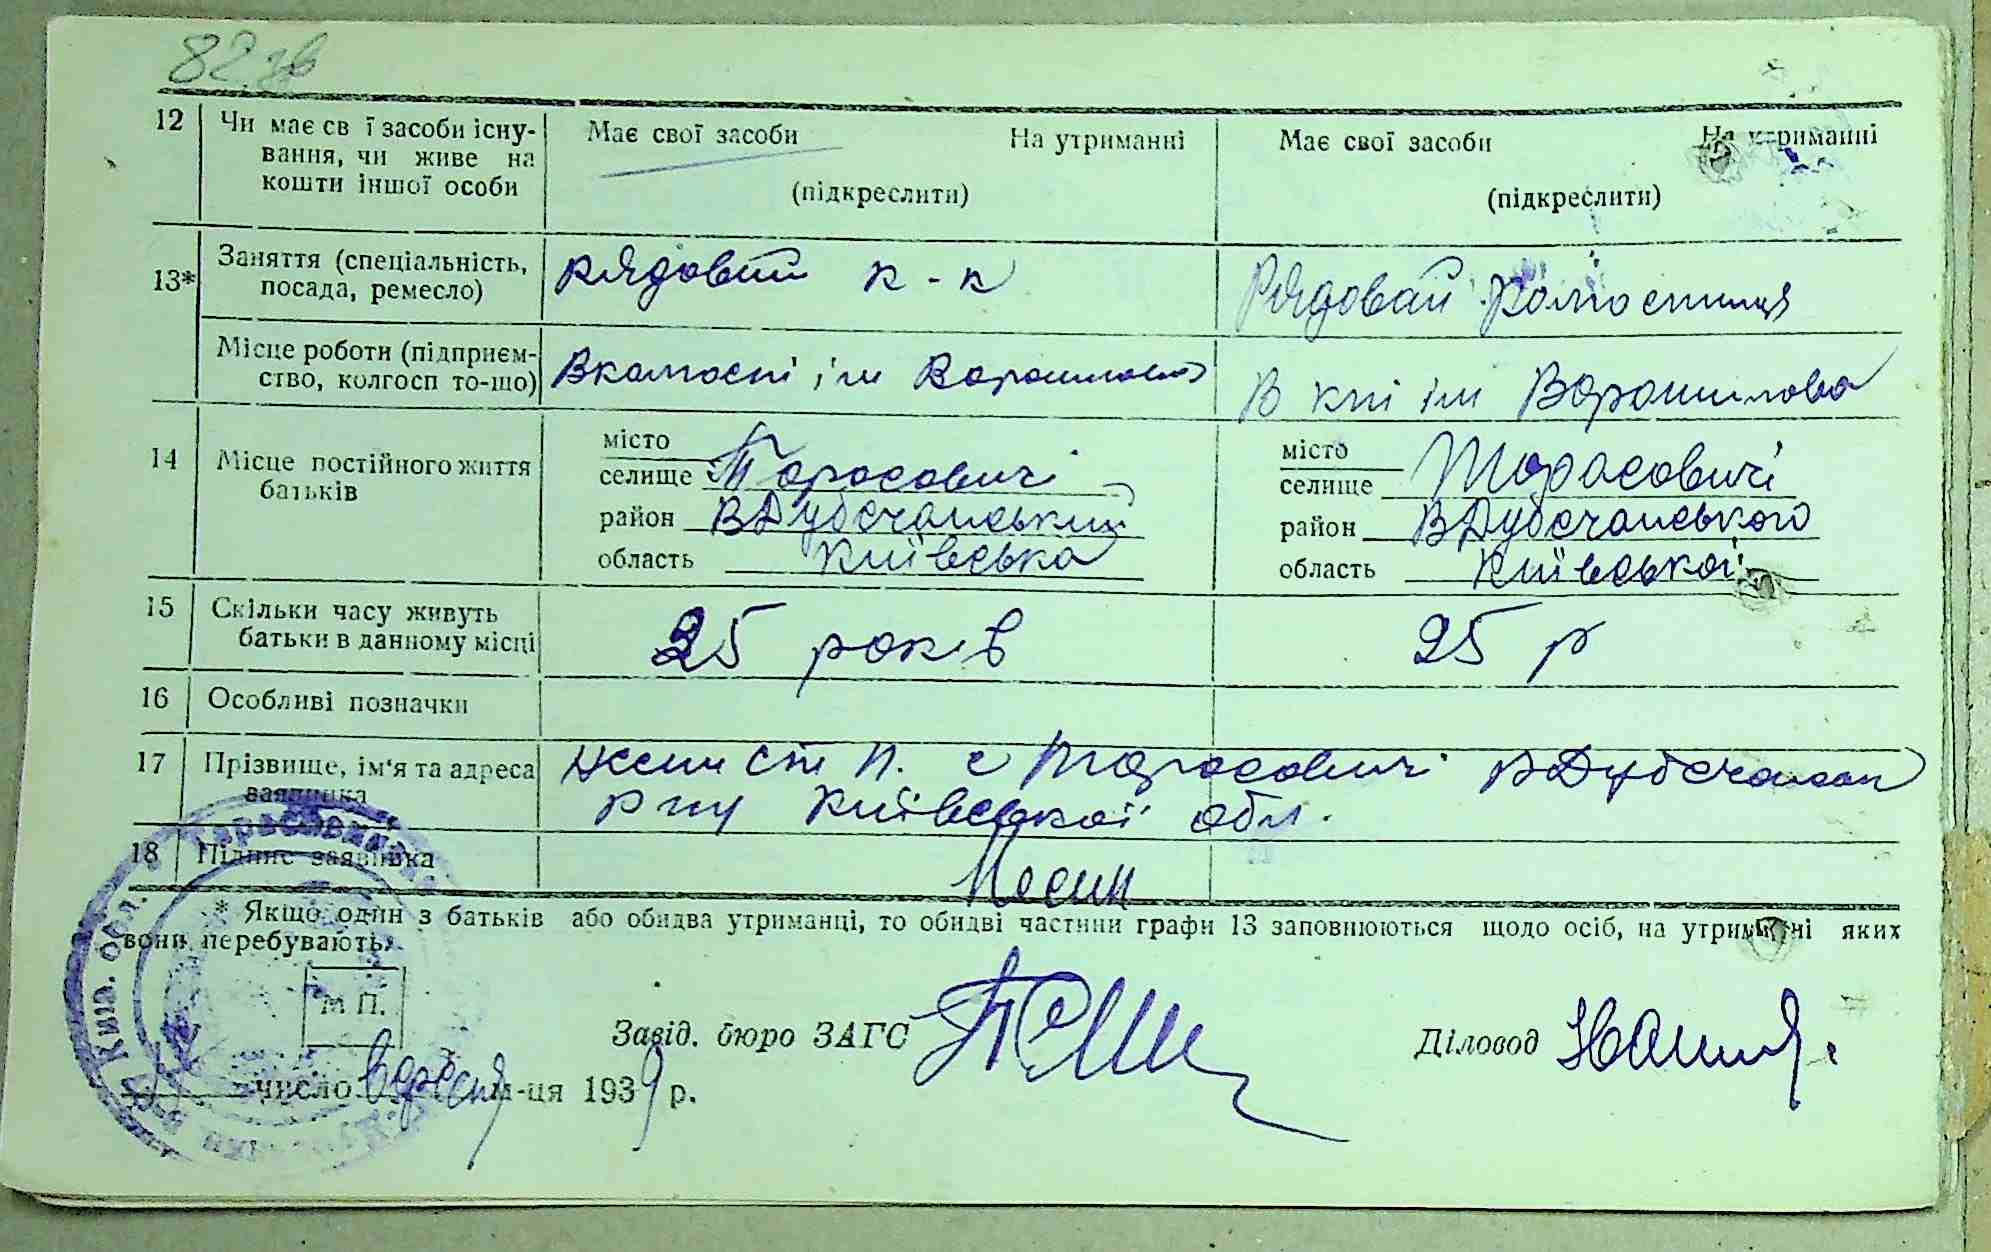 82 зв
12 Чи має св ї засоби існу- Має свої засоби На утриманні Має свої засоби На утриманні
вання, чи живе на
кошти іншої особи (підкреслити) (підкреслити)
13* Заняття (спеціальність, рядовий к-к Рядовай колгоспниця
посада, ремесло)
Місце роботи (підприєм- В колгоспі ім Ворошилова В кпі ім Ворошилова
ство, колгосп то-що)
14 Місце постійного життя батьків
місто місто
селище Тарасовичі селище Тарасовичі
район ВДубечанський район ВДубечанського
область Київська область Київської
15 Скільки часу живуть 25 років 25 р
батьки в данному місці
16 Особливі позначки
17 Прізвище, ім'я та адреса П. с Тарасовичі ВДубечанськ
заявника р ну Київської обл.
18 Підпис заявника
* Якщо один з батьків або обидва утриманці, то обидві частини графи 13 заповнюються щодо осіб, на утриманні яких
вони перебувають.
М П.
Завід. бюро ЗАГС Діловод
число вересня м-ця 1939 р.